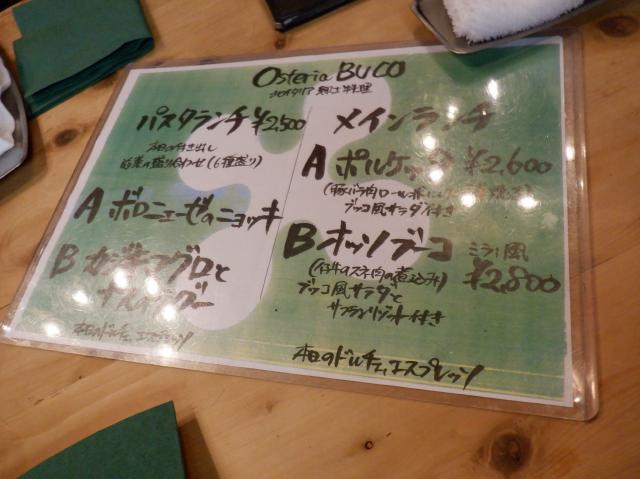 Osteria BUCO
北イタリア郷土料理
パスタランチ ¥2,500
本日の付き出し
前菜の盛り合わせ(6種盛り)
A ボロニェーゼのニョッキ
B カジキマグロと
本日のドルチェ、エスプレッソ
メインランチ
A ポルケッタ ¥2,600
(豚バラ肉ロール
ブッコ風サラダ付き
B オッソブーコ ミラノ風
(仔牛のスネ肉の煮込み) ¥2,800
ブッコ風サラダと
サフランリゾット付き
本日のドルチェ、エスプレッソ